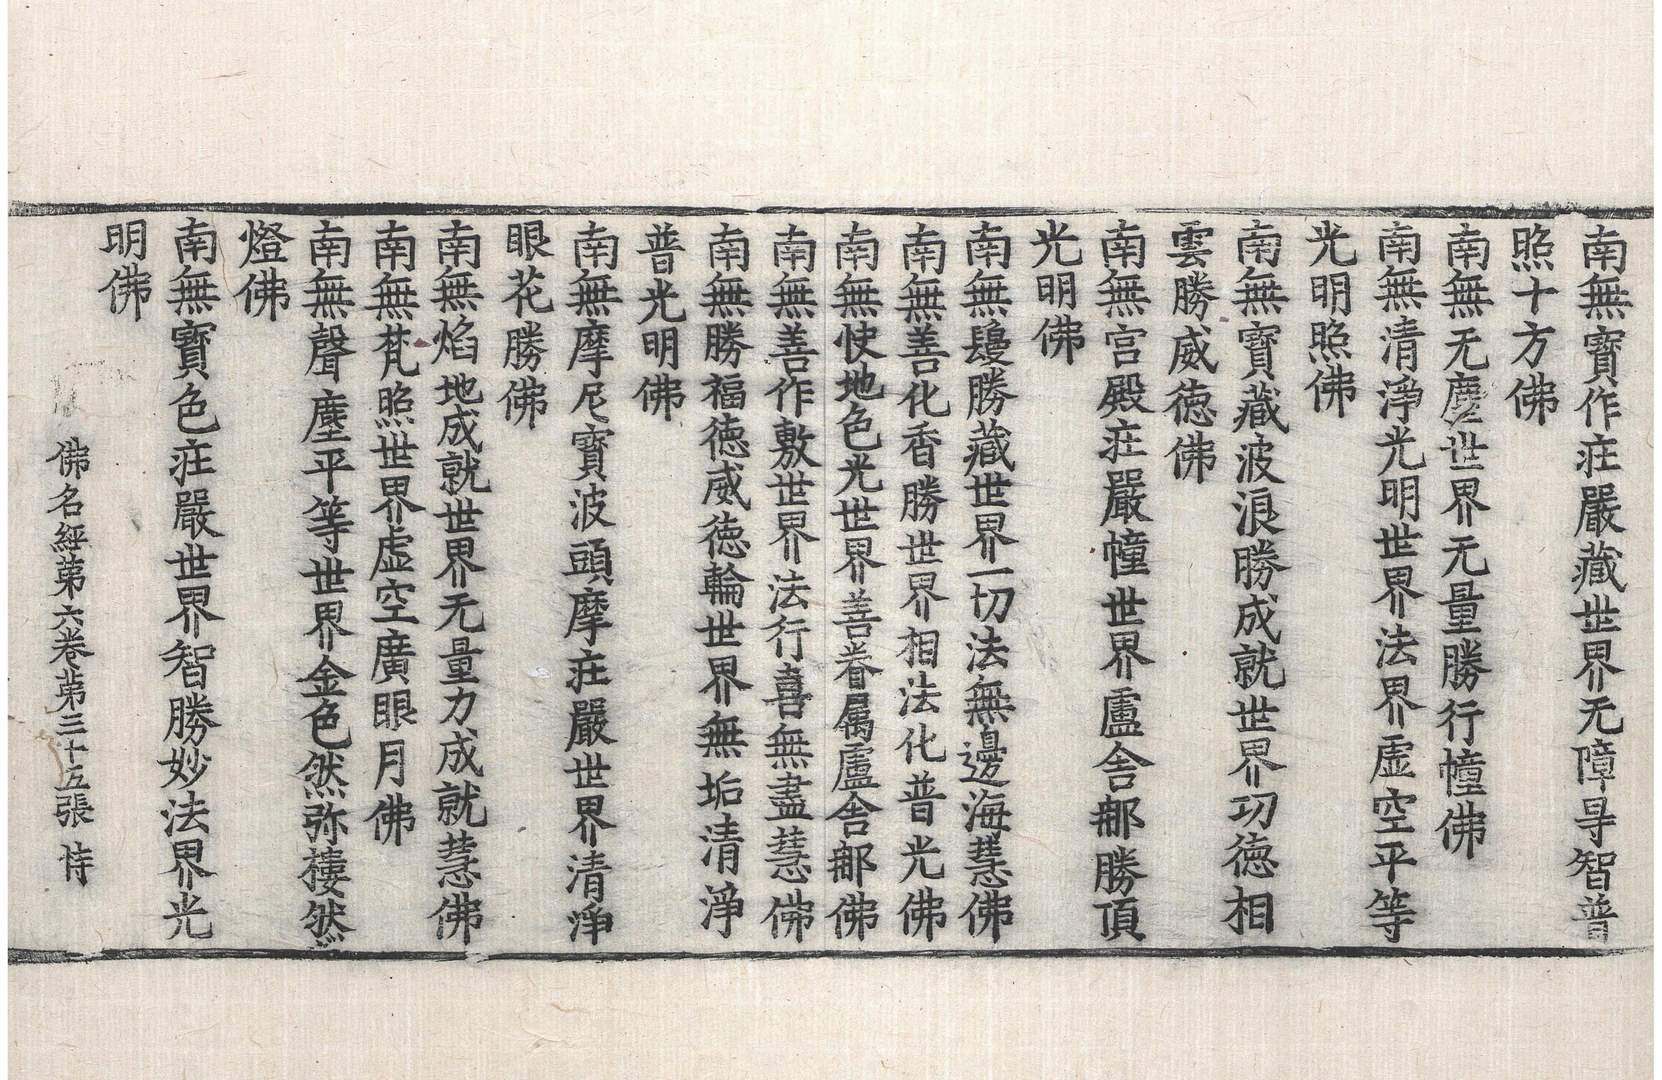 南無寶作莊嚴藏世界无障㝵智普
照十方佛
南無无塵世界无量勝行幢佛
南無清淨光明世界法界虛空平等
光明照佛
南無寶藏波浪勝成就世界功德相
雲勝威德佛
南無宮殿莊嚴幢世界盧舍那勝頂
光明佛
南無鬘勝藏世界一切法無邊海慧佛
南無善化香勝世界相法化普光佛
南無快地色光世界善眷属盧舍那佛
南無善作敷世界法行喜無盡慧佛
南無勝福德威德輪世界無垢清淨
普光明佛
南無摩尼寶波頭摩莊嚴世界清淨
眼花勝佛
南無焰地成就世界无量力成就慧佛
南無梵照世界虛空廣眼月佛
南無聲塵平等世界金色然弥樓然
燈佛
南無寶色莊嚴世界智勝妙法界光
明佛
佛名經第六卷第三十五張 恃